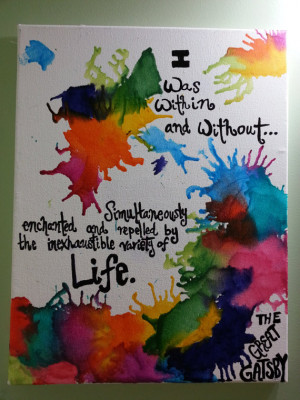 I
was
within
and without...
Simultaneously
enchanted and repelled by
the inexhaustible variety of
Life.
THE
GREAT
GATSBY